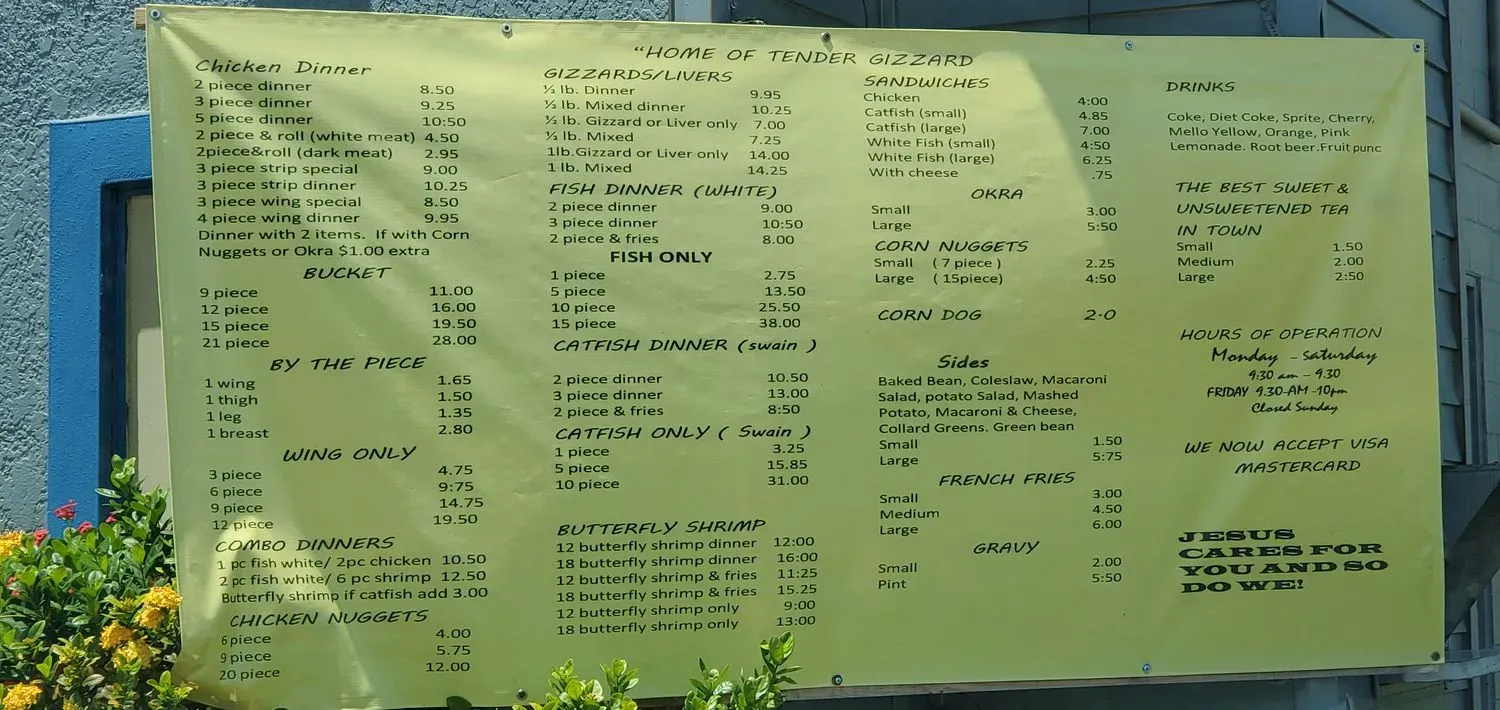 "HOME OF TENDER GIZZARD
Chicken Dinner
2 piece dinner 8.50
3 piece dinner 9.25
5 piece dinner 10:50
2 piece & roll (white meat) 4.50
2piece&roll (dark meat) 2.95
3 piece strip special 9.00
3 piece strip dinner 10.25
3 piece wing special 8.50
4 piece wing dinner 9.95
Dinner with 2 items. If with Corn
Nuggets or Okra $1.00 extra
BUCKET
9 piece 11.00
12 piece 16.00
15 piece 19.50
21 piece 28.00
BY THE PIECE
1 wing 1.65
1 thigh 1.50
1 leg 1.35
1 breast 2.80
WING ONLY
3 piece 4.75
6 piece 9:75
9 piece 14.75
12 piece 19.50
COMBO DINNERS
1 pc fish white/ 2pc chicken 10.50
2 pc fish white/ 6 pc shrimp 12.50
Butterfly shrimp if catfish add 3.00
CHICKEN NUGGETS
6 piece 4.00
9 piece 5.75
20 piece 12.00
GIZZARDS/LIVERS
½ lb. Dinner 9.95
½ lb. Mixed dinner 10.25
½ lb. Gizzard or Liver only 7.00
½ lb. Mixed 7.25
1lb.Gizzard or Liver only 14.00
1 lb. Mixed 14.25
FISH DINNER (WHITE)
2 piece dinner 9.00
3 piece dinner 10:50
2 piece & fries 8.00
FISH ONLY
1 piece 2.75
5 piece 13.50
10 piece 25.50
15 piece 38.00
CATFISH DINNER (swain )
2 piece dinner 10.50
3 piece dinner 13.00
2 piece & fries 8:50
CATFISH ONLY ( Swain )
1 piece 3.25
5 piece 15.85
10 piece 31.00
BUTTERFLY SHRIMP
12 butterfly shrimp dinner 12:00
18 butterfly shrimp dinner 16:00
12 butterfly shrimp & fries 11:25
18 butterfly shrimp & fries 15.25
12 butterfly shrimp only 9:00
18 butterfly shrimp only 13:00
SANDWICHES
Chicken 4:00
Catfish (small) 4.85
Catfish (large) 7.00
White Fish (small) 4:50
White Fish (large) 6.25
With cheese .75
OKRA
Small 3.00
Large 5:50
CORN NUGGETS
Small ( 7 piece ) 2.25
Large ( 15piece) 4:50
CORN DOG 2.0
Sides
Baked Bean, Coleslaw, Macaroni
Salad, potato Salad, Mashed
Potato, Macaroni & Cheese,
Collard Greens. Green bean
Small 1.50
Large 5:75
FRENCH FRIES
Small 3.00
Medium 4.50
Large 6.00
GRAVY
Small 2.00
Pint 5:50
DRINKS
Coke, Diet Coke, Sprite, Cherry,
Mello Yellow, Orange, Pink
Lemonade. Root beer.Fruit punc
THE BEST SWEET &
UNSWEETENED TEA
IN TOWN
Small 1.50
Medium 2.00
Large 2:50
HOURS OF OPERATION
Monday - Saturday
9:30 am - 9.30
FRIDAY 9.30-AM -10pm
Closed Sunday
WE NOW ACCEPT VISA
MASTERCARD
JESUS
CARES FOR
YOU AND SO
DO WE!